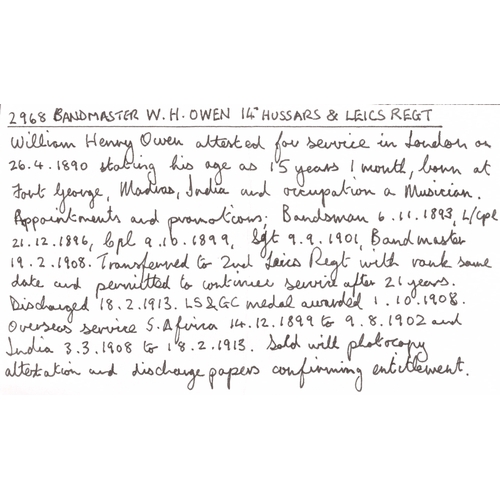 2968 BANDMASTER W. H. OWEN 14TH HUSSARS & LEICS REGT
William Henry Owen attested for service in London on
26.4.1890 stating his age as 15 years 1 month, born at
Fort George, Madras, India and occupation a Musician.
Appointments and promotions: Bandsman 6.11.1893, L/Cpl
21.12.1896, Cpl 9.10.1899, Sgt 9.9.1901, Bandmaster
19.2.1908. Transferred to 2nd Leics Regt with rank same
date and permitted to continue service after 21 years.
Discharged 18.2.1913. LS&GC medal awarded 1.10.1908.
Overseas service S. Africa 14.12.1899 to 9.8.1902 and
India 3.3.1908 to 18.2.1913. Sold will photocopy
attestation and discharge papers confirming entitlement.